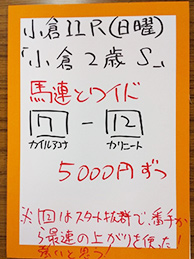 小倉11R(日曜)
「小倉2歳S」
馬連とワイド
7 - 12
カイルアコナ カリニート
5000円ずつ
※12はスタート抜群で、番手か
ら最速の上がりを使った!
強いと思う!